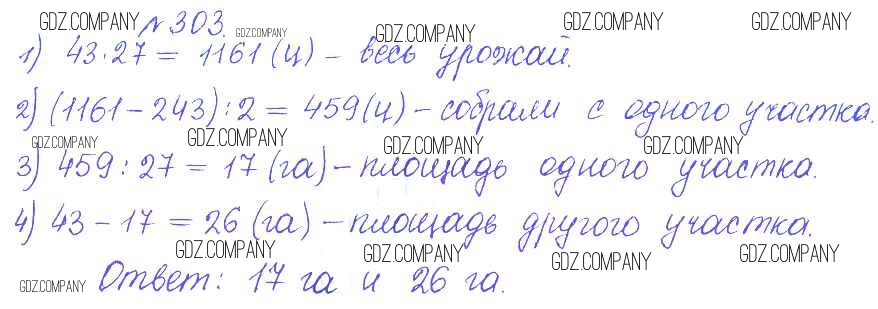 GDZ.COMPANY № 303. GDZ.COMPANY GDZ.COMPANY GDZ.COMPANY GDZ.COMPANY
1) 43·27 = 1161 (ц) – весь урожай.
2) (1161 – 243) : 2 = 459 (ц) – собрали с одного участка.
GDZ.COMPANY GDZ.COMPANY GDZ.COMPANY GDZ.COMPANY
3) 459 : 27 = 17 (га) – площадь одного участка.
4) 43 – 17 = 26 (га) – площадь другого участка.
GDZ.COMPANY GDZ.COMPANY GDZ.COMPANY GDZ.COMPANY
GDZ.COMPANY Ответ: 17 га и 26 га.